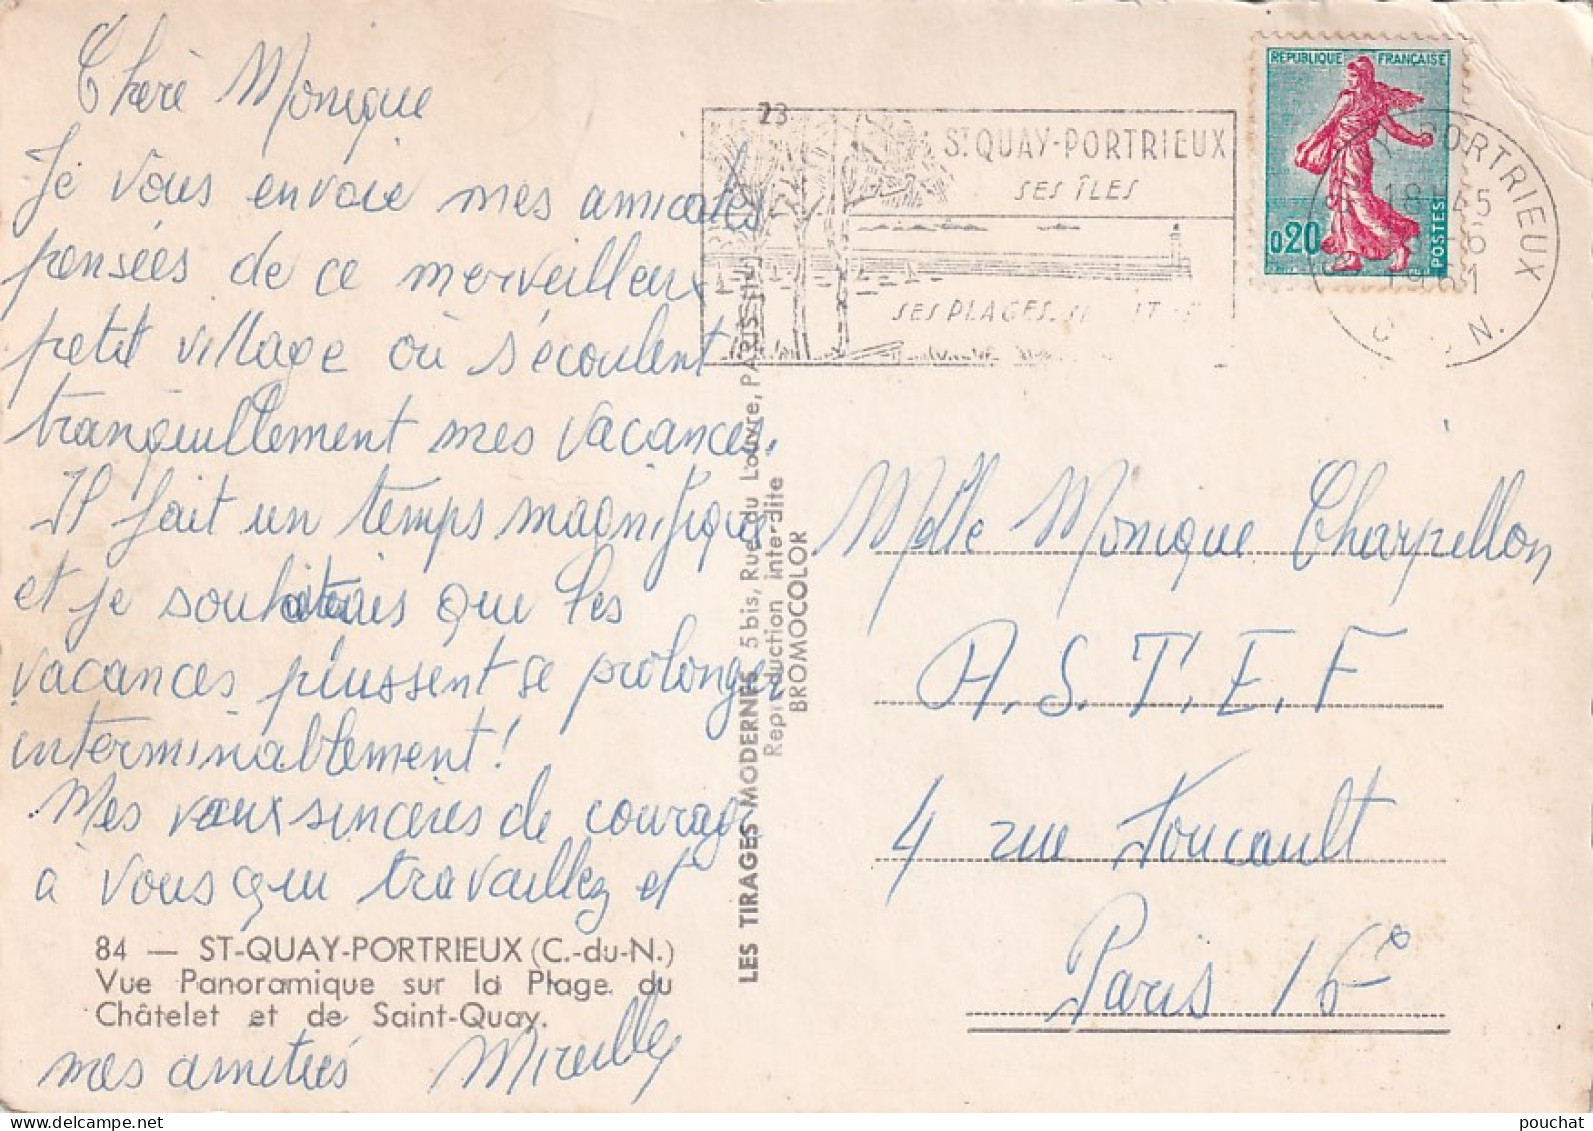 Chère Monique
Je vous envoie mes amicales
pensées de ce merveilleux
petit village où s'écoulent
tranquillement mes vacances.
Il fait un temps magnifique
et je souhaitais que les
vacances puissent se prolonger
interminablement!
Mes vœux sincères de courage
à vous qui travaillez et
mes amitiés Mireille
84 — ST-QUAY-PORTRIEUX (C.-du-N.)
Vue Panoramique sur la Plage du
Châtelet et de Saint-Quay.
LES TIRAGES MODERNES 5 bis, Rue du Louvre, PARIS
Reproduction interdite
BROMOCOLOR
23
ST QUAY-PORTRIEUX
SES ÎLES
SES PLAGES.
REPUBLIQUE FRANÇAISE
0,20
POSTES
PORTRIEUX
18 H 45
1961
Melle Monique Charpillon
A.S.T.E.F
4 rue Foucault
Paris 16e
pouchat